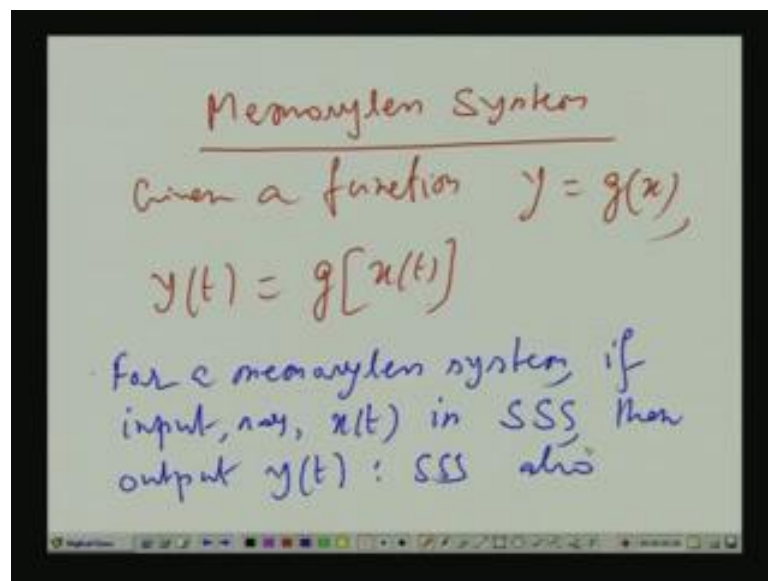 Memoryless System
Given a function y = g(x),
y(t) = g[x(t)]
For a memoryless system, if
input, say, x(t) is SSS, then
output y(t) : SSS also